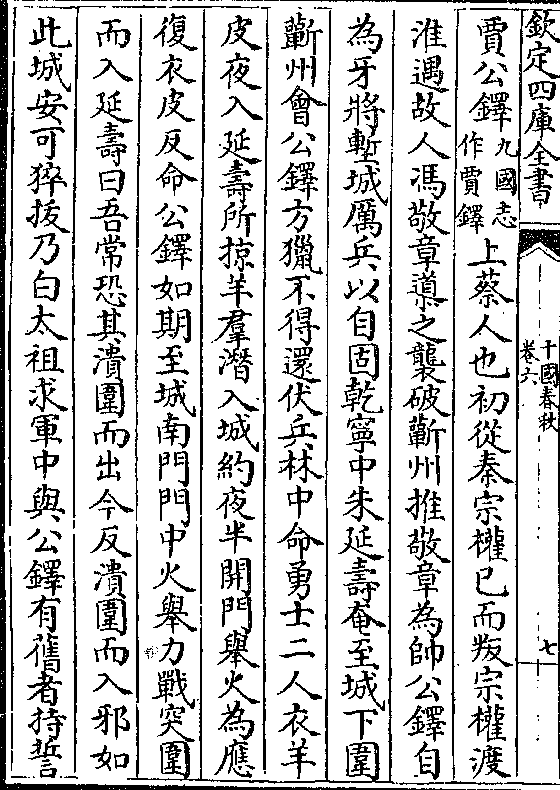 欽定四庫全書
十國春秋
卷六
七
賈公鐸九國志作賈鐸上蔡人也初從秦宗權已而叛宗權渡
淮遇故人馮敬章導之襲破蘄州推敬章為帥公鐸自
為牙將塹城厲兵以自固乾寧中朱延壽奄至城下圍
蘄州會公鐸方獵不得還伏兵林中命勇士二人衣羊
皮夜入延壽所掠羊羣潛入城約夜半開門舉火為應
復衣皮反命公鐸如期至城南門門中火舉力戰突圍
而入延壽曰吾常恐其潰圍而出今反潰圍而入邪如
此城安可猝拔乃白太祖求軍中與公鐸有舊者持誓